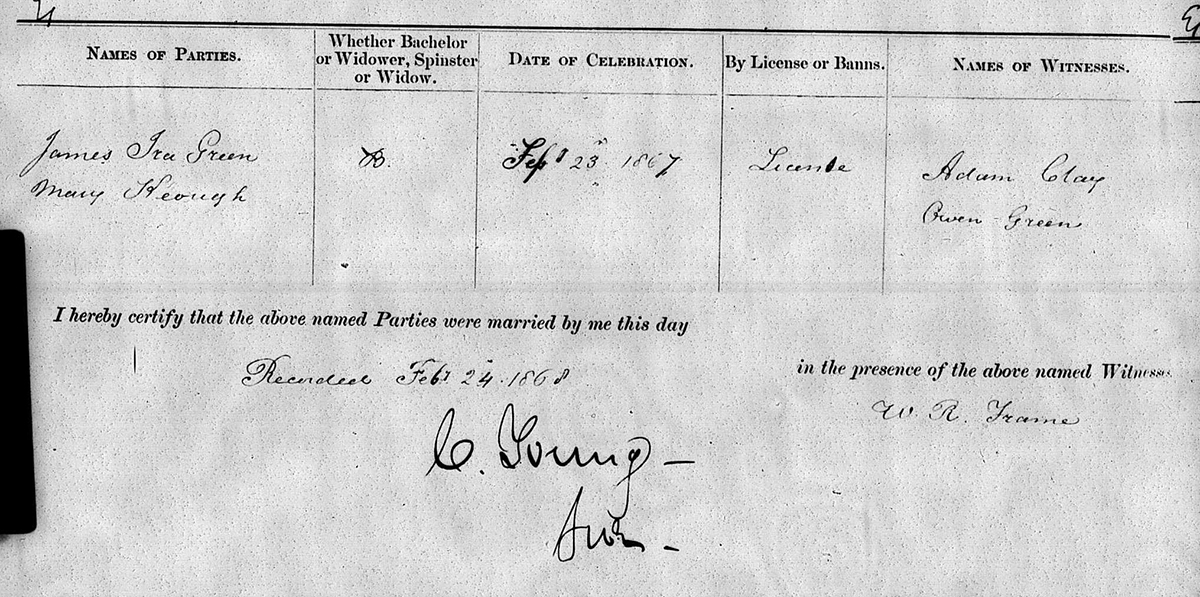 NAMES OF PARTIES.
Whether Bachelor
or Widower, Spinster
or Widow.
DATE OF CELEBRATION.
By License or Banns.
NAMES OF WITNESSES.
James Ira Green
Mary Keough
B.
Feby 23 1867
License
Adam Clay
Owen Green
I hereby certify that the above named Parties were married by me this day
in the presence of the above named Witnesses
Recorded Feby 24 1868
W. R. Frame
C. Young